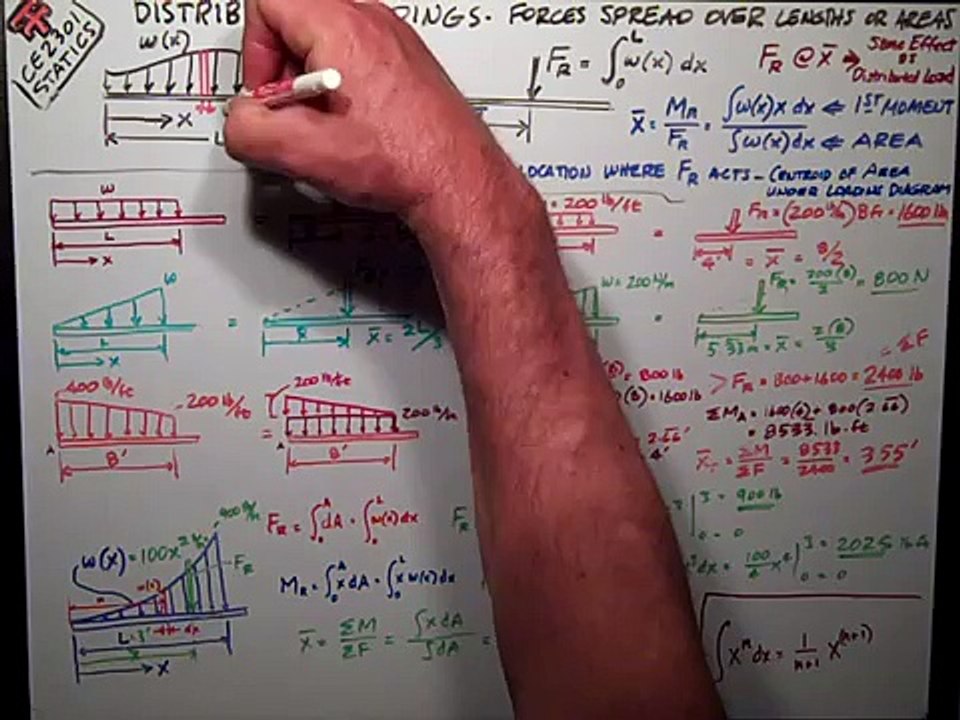 CE2301
STATICS
DISTRIB DINGS- FORCES SPREAD OVER LENGTHS OR AREAS
w(x)
x
L
F_R = ∫₀ᴸ w(x) dx
F_R @ x̄ → SAME EFFECT
AS
DISTRIBUTED LOAD
x̄ = M_R/F_R = ∫w(x)x dx/∫w(x)dx ⇐ 1ST MOMENT
⇐ AREA
LOCATION WHERE F_R ACTS - CENTROID OF AREA
UNDER LOADING DIAGRAM
w
L
x
= 200 lb/ft
=
F_R = (200 lb/ft) 8ft = 1600 lb
4' = x̄ = 8/2
w
L
x
=
x̄
x̄ = 2L/3
w = 200 N/m
=
F_R = 200(8)/2 = 800 N
5.33m = x̄ = 2(8)/3
400 lb/ft
200 lb/ft
A
8'
=
200 lb/ft
200 lb/ft
A
8'
= 800 lb
(8) = 1600 lb
2.66'
4'
= ΣF
> F_R = 800 + 1600 = 2400 lb
ΣM_A = 1600(4) + 800(2.66)
= 8533 lb·ft
x̄_r = ΣM/ΣF = 8533/2400 = 3.55'
w(x) = 100x²
F_R
L = 3'
dx
x
F_R = ∫₀ᴬ dA = ∫₀ᴸ w(x) dx
F_R
|₀³ = 900 lb
= 0
M_R = ∫₀ᴬ x dA = ∫₀ᴸ x w(x) dx
³dx = 100/4 x⁴ |₀³ = 2025 lb ft
= 0
x̄ = ΣM/ΣF = ∫x dA/∫dA =
∫xⁿ dx = 1/(n+1) x^(n+1)